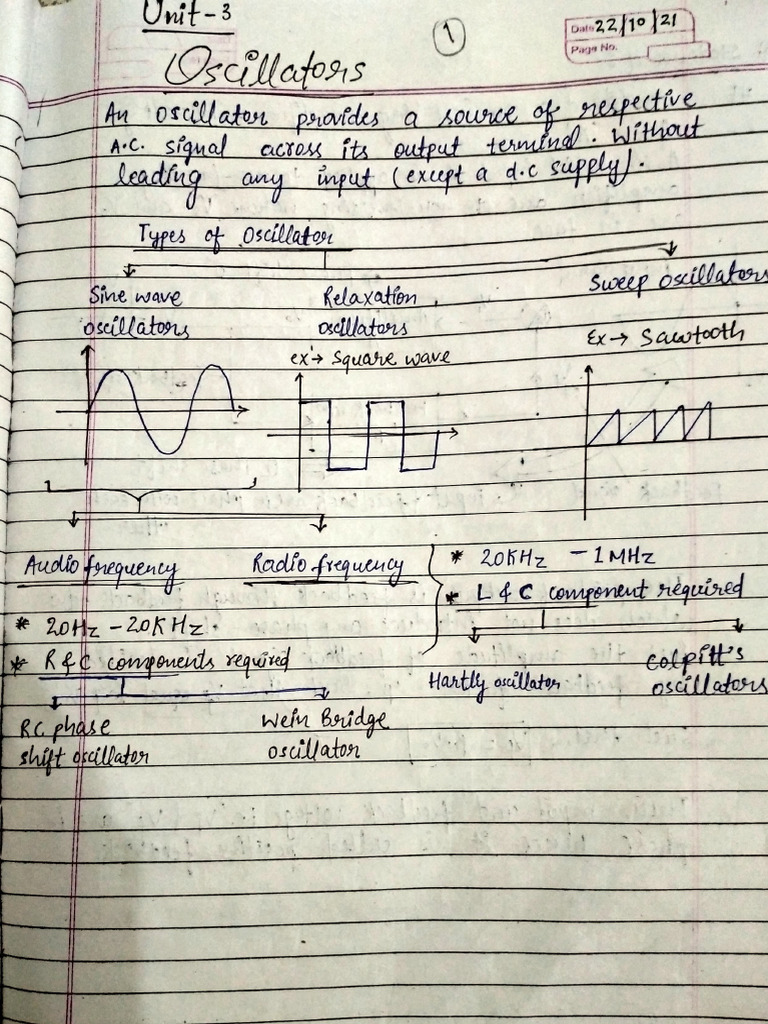 Unit-3
1
Date 22/10/21
Page No.
Oscillators
An oscillator provides a source of respective
A.C. signal across its output terminal. Without
leading any input (except a d.c supply).
Types of Oscillator
Sine wave
oscillators
Relaxation
oscillators
ex → Square wave
Sweep oscillators
Ex → Sawtooth
Audio frequency
* 20Hz - 20KHz
* R & C components required
RC phase
shift oscillator
Wein Bridge
oscillator
Radio frequency
* 20KHz - 1MHz
* L & C component required
Hartly oscillator
Colpitt's
oscillators